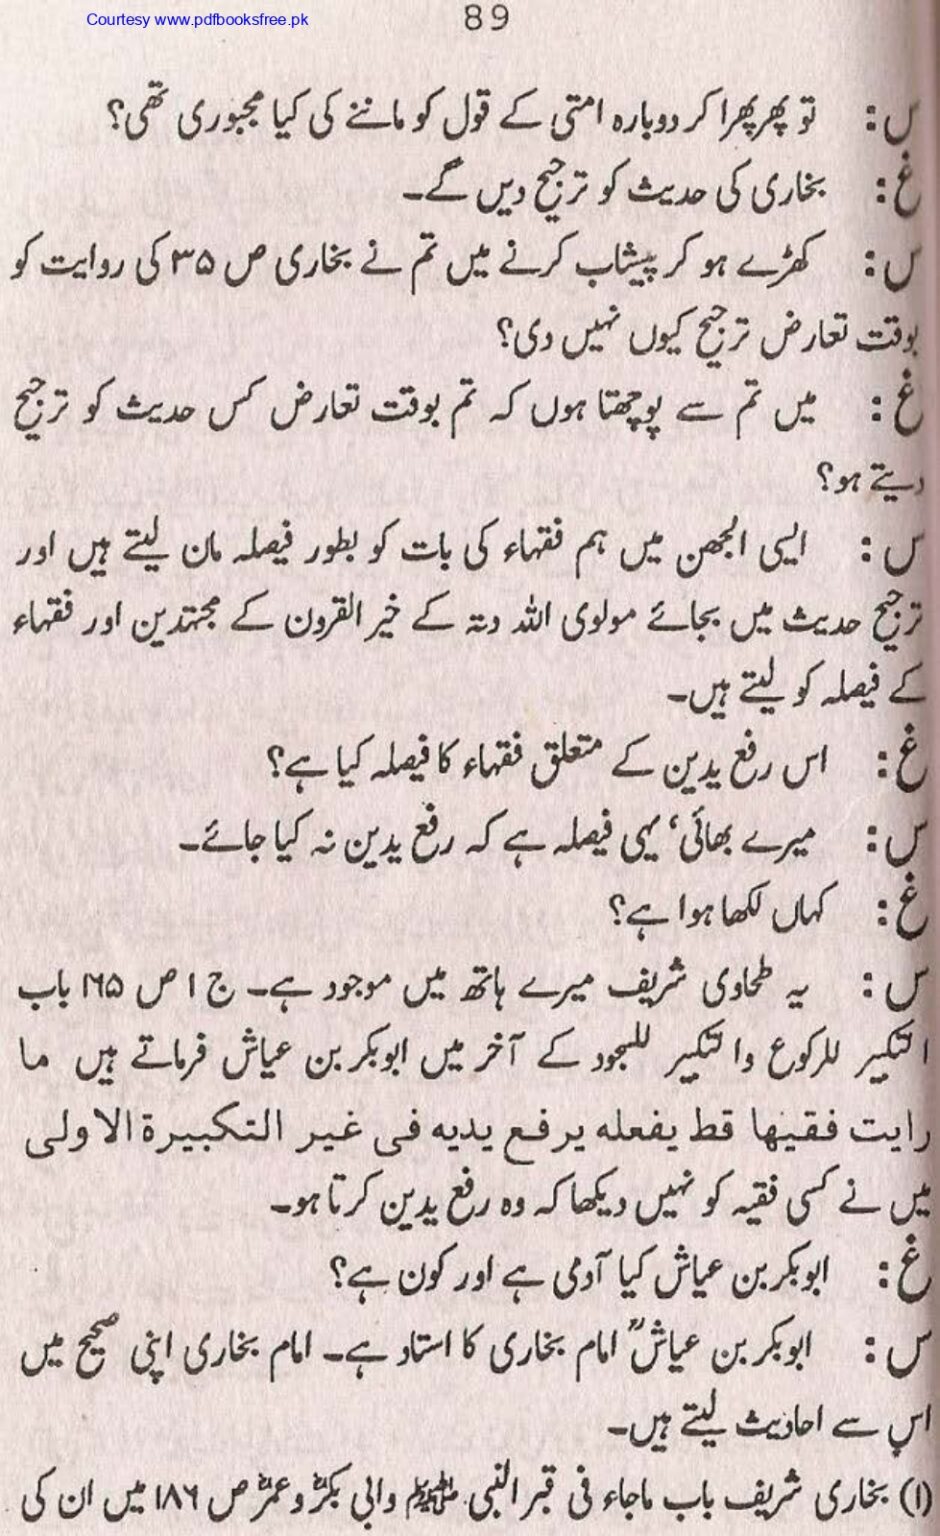 Courtesy www.pdfbooksfree.pk
89
س: تو پھر پھرا کر دوبارہ امتی کے قول کو ماننے کی کیا مجبوری تھی؟
غ: بخاری کی حدیث کو ترجیح دیں گے۔
س: کھڑے ہو کر پیشاب کرنے میں تم نے بخاری ص ۳۵ کی روایت کو
بوقت تعارض ترجیح کیوں نہیں دی؟
غ: میں تم سے پوچھتا ہوں کہ تم بوقت تعارض کس حدیث کو ترجیح
دیتے ہو؟
س: ایسی الجھن میں ہم فقہاء کی بات کو بطور فیصلہ مان لیتے ہیں اور
ترجیح حدیث میں بجائے مولوی اللہ دتہ کے خیر القرون کے مجتہدین اور فقہاء
کے فیصلہ کو لیتے ہیں۔
غ: اس رفع یدین کے متعلق فقہاء کا فیصلہ کیا ہے؟
س: میرے بھائی، یہی فیصلہ ہے کہ رفع یدین نہ کیا جائے۔
غ: کہاں لکھا ہوا ہے؟
س: یہ طحاوی شریف میرے ہاتھ میں موجود ہے۔ ج ۱ ص ۱۶۵ باب
التکبیر للرکوع والتکبیر للسجود کے آخر میں ابوبکر بن عیاش فرماتے ہیں ما
رایت فقیہا قط یفعله یرفع یدیه فی غیر التکبیرة الاولی
میں نے کسی فقیہ کو نہیں دیکھا کہ وہ رفع یدین کرتا ہو۔
غ: ابوبکر بن عیاش کیا آدمی ہے اور کون ہے؟
س: ابوبکر بن عیاشؒ امام بخاری کا استاد ہے۔ امام بخاری اپنی صحیح میں
اس سے احادیث لیتے ہیں۔
(۱) بخاری شریف باب ماجاء فی قبر النبی ﷺ وابی بکرؓ وعمرؓ ص ۱۸۶ میں ان کی